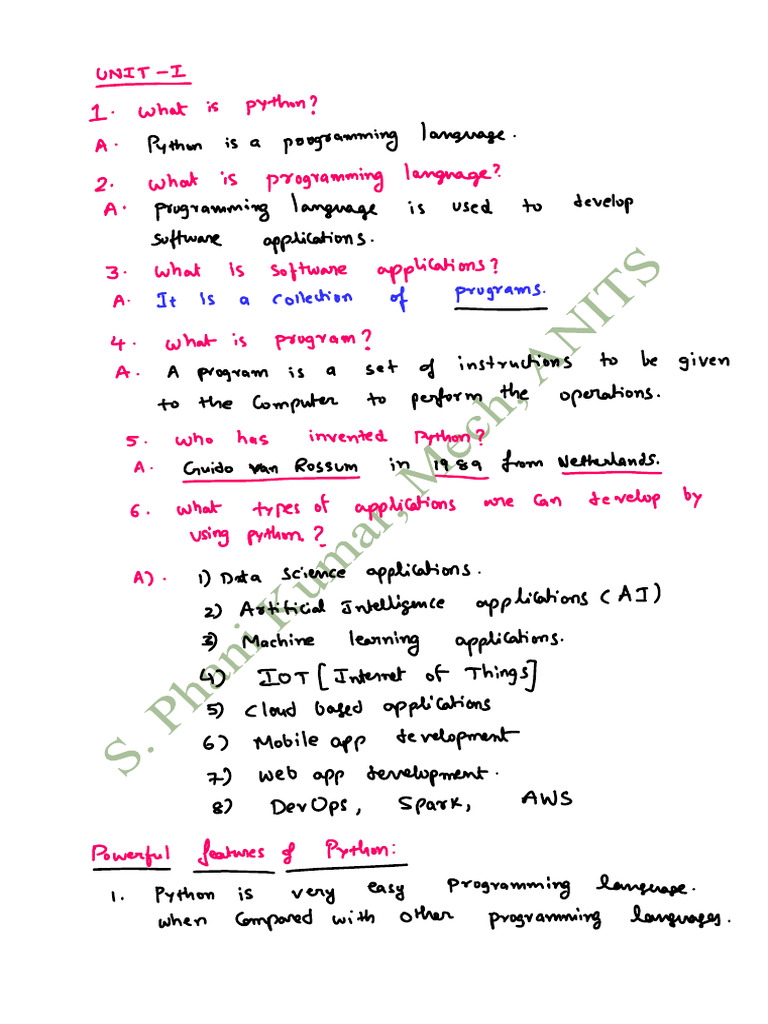 UNIT - I
1. What is python?
A. Python is a programming language.
2. What is programming language?
A. programming language is used to develop
software applications.
3. What Is software applications?
A. It Is a collection of programs.
4. What is program?
A. A program is a set of instructions to be given
to the Computer to perform the operations.
5. Who has invented Python?
A. Guido van Rossum in 1989 from Netherlands.
6. What types of applications we can develop by
using python.?
A). 1) Data Science applications.
2) Artificial Intelligence applications (AI)
3) Machine learning applications.
4) IOT [Internet of Things]
5) Cloud based applications
6) Mobile app development
7) Web app development.
8) DevOps, Spark, AWS
Powerful features of Python:
1. Python is very easy programming language.
when compared with other programming languages.
S. Phani Kumar, Mech, ANITS